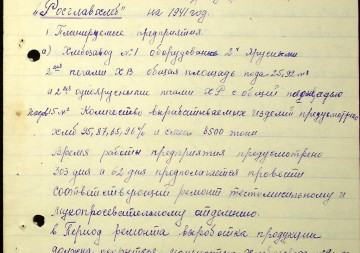 "Росглавхлеб" на 1941 год.
1. Планируемое предприятия
а) Хлебозавод №1 оборудован 2х Ярусными
2мя печами ХВ общая площадь пода 25,92 м²
и 2 одноярусными печами ХР с общей площадью
15 м² Количество вырабатываемых изделий предусмотрено
хлеб 95, 87, 65, 96% и смеси 8500 тонн
Время работы предприятия предусмотрено
303 дня а 62 дня предполагается провести
соответствующий ремонт тестомесильному и
мукопросевательному отделению.
в Период ремонта выработка продукции
должна